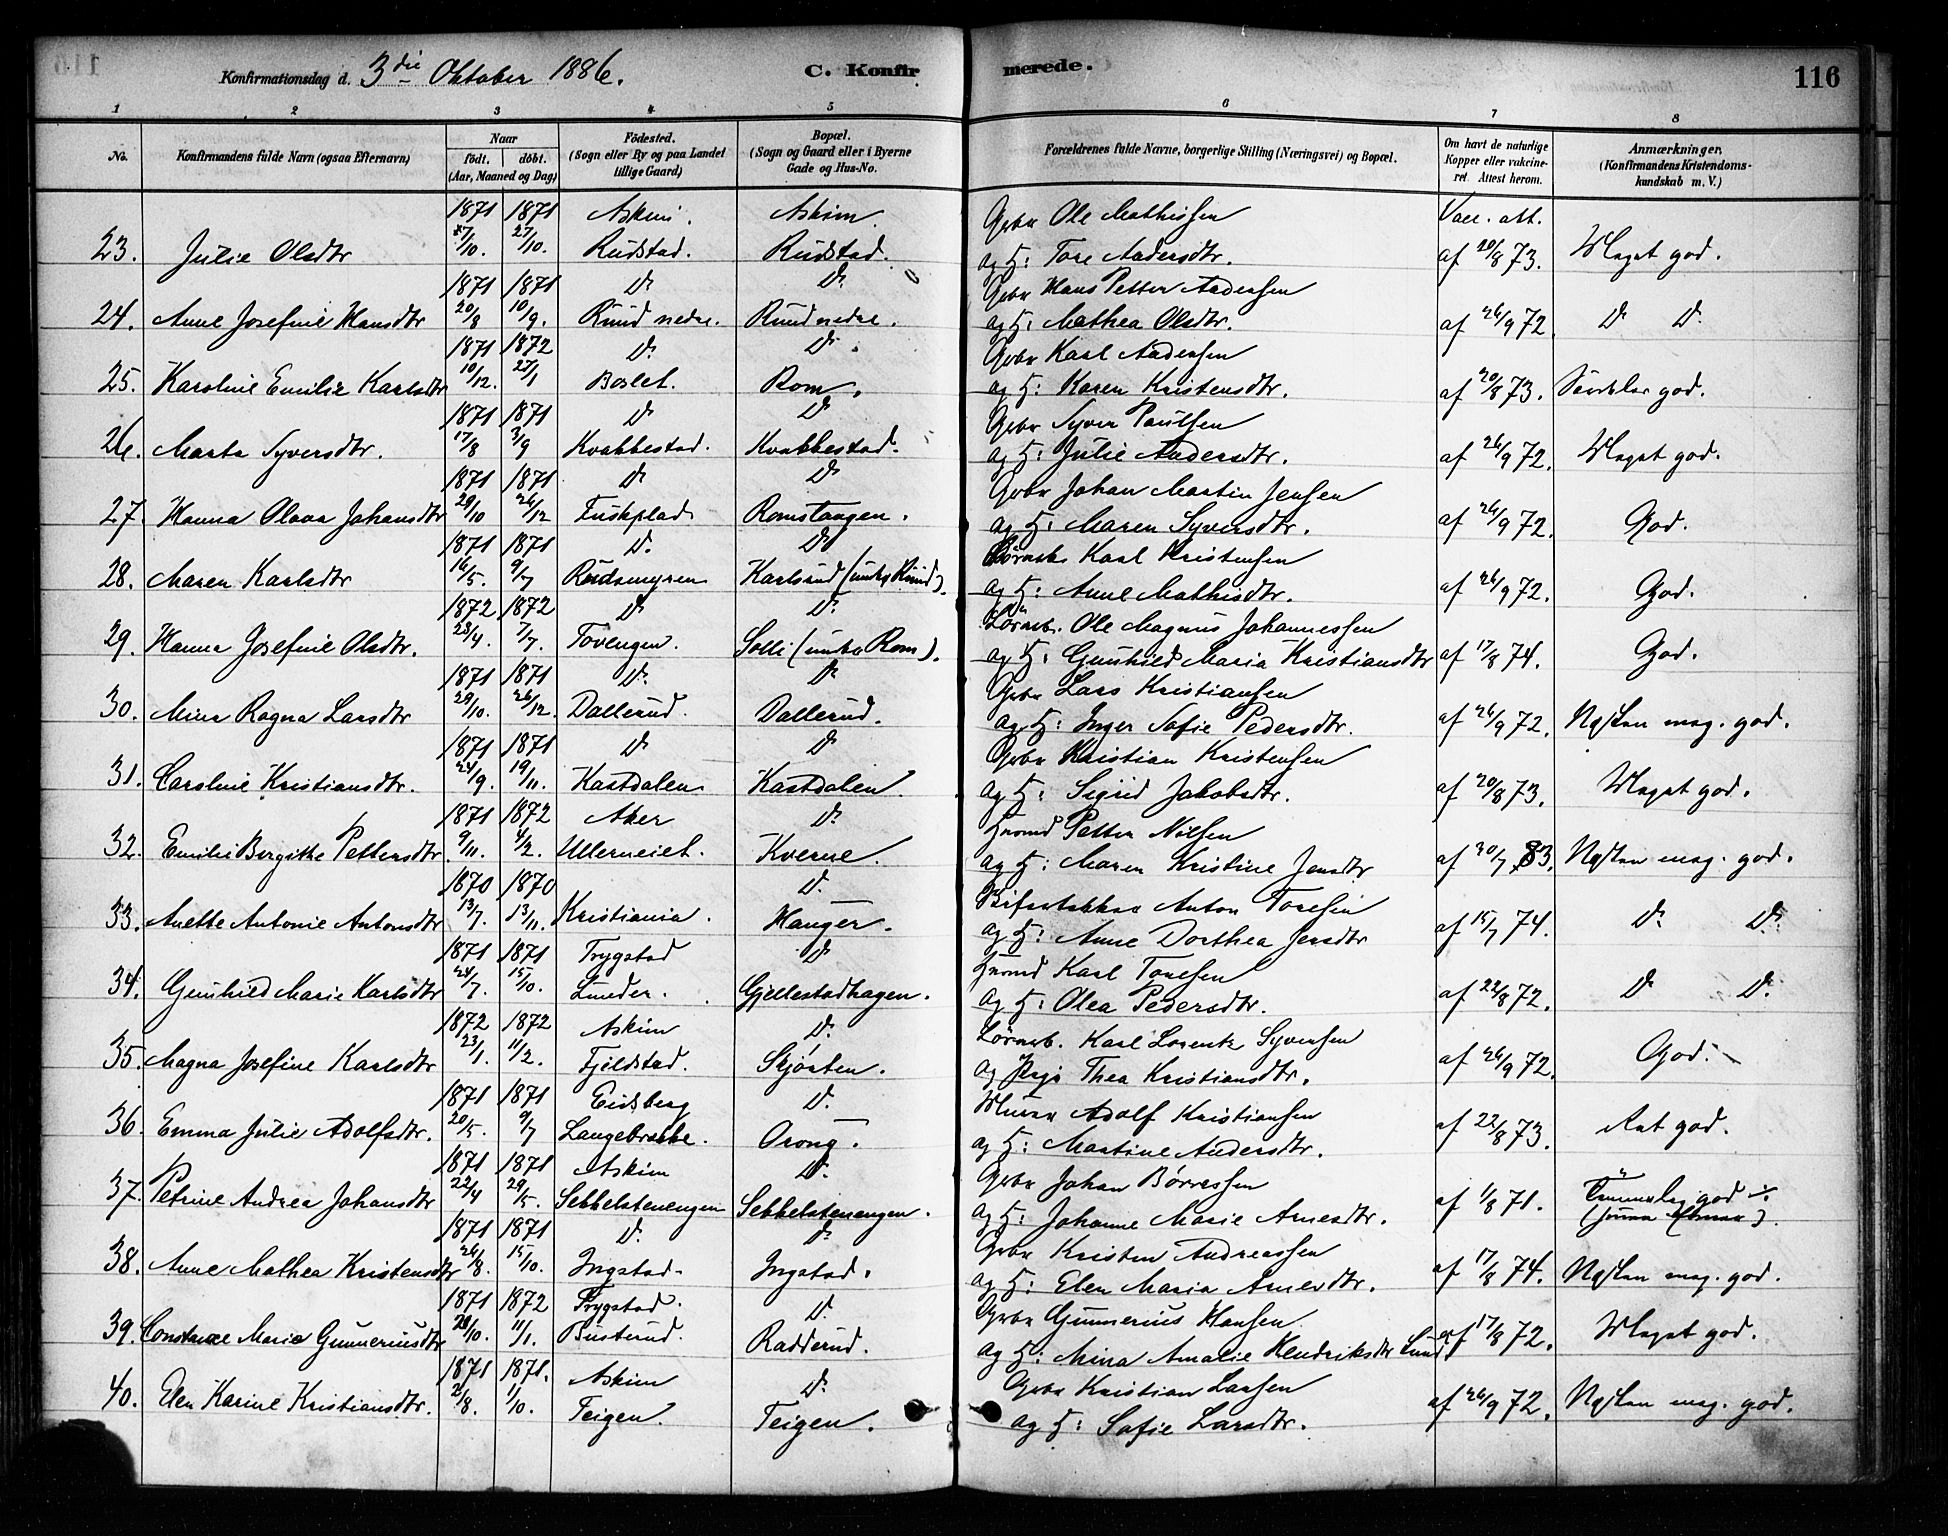 Konfirmationsdag d. 3die Oktober 1886. C. Konfirmerede. 116
1 2 3 4 5 6 7 8
No. Konfirmandens fulde Navn (ogsaa Efternavn) Naar födt. döbt. (Aar, Maaned og Dag) Födested. (Sogn eller By og paa Landet tillige Gaard) Bopæl. (Sogn og Gaard eller i Byerne Gade og Hus-No. Forældrenes fulde Navne, borgerlige Stilling (Næringsvei) og Bopæl. Om havt de naturlige Kopper eller vakcineret. Attest herom. Anmærkninger. (Konfirmandens Kristendomskundskab m. V.)
1871 1871 Askim. Askim Gbr Ole Mathissen Vacc. att.
23. Julie Olsdtr 27/10. Rudstad. Rudstad. og H: Tore Andersdtr. af 20/8 73. Meget god.
1871 1871 Do Do Gbr Hans Petter Andersen
24. Anne Josefine Hansdtr 20/8 10/9. Rund nedre. Rund nedre. og H: Mathea Olsdtr. af 26/9 72. Do Do
1871 1872 Do Do Gbr Karl Andersen
25. Karoline Emilie Karlsdtr 10/12. 27/1 Boslet. Rom. og H: Karen Kristensdtr. af 20/8 73. Særdeles god.
1871 1871 Do Do Gbr Syver Paulsen
26. Marta Syversdtr. 17/8 3/9 Kvakkestad. Kvakkestad. og H: Julie Andersdtr. af 26/9 72. Meget god.
1871 1871 Do Do Gbr Johan Martin Jensen
27. Hanna Olava Johansdtr 29/10 26/12 Romstangen. og H: Maren Syversdtr. af 26/9 72. God.
1871 1871 Do Do Karl Kristensen
28. Maren Karlsdtr 16/5. 9/7 Rudsmyren Karlsrud (under Rund). og H: Anne Mathisdtr. af 26/9 72. God.
1872 1872 Do Do Lørneb. Ole Magnus Johannessen
29. Hanna Josefine Olsdtr. 28/4. 7/7. Tovengen. Solli (under Rom). og H: Gunhild Maria Kristiansdtr af 17/8 74. God.
1871 1871 Do Do Gbr Lars Kristiansen
30. Mina Ragna Larsdtr 29/10. 26/12. Dallerud. Dallerud. og H: Inger Sofie Pedersdtr. af 26/9 72. Næsten meg. god.
1871 1871 Do Do Gbr Kristian Kristensen
31. Caroline Kristiansdtr. 24/9. 19/11. Kastdalen Kastdalen. og H: Sigrid Jakobsdtr. af 20/8 73. Meget god.
1871 1872 Aker Do Petter Nilsen
32. Emilie Bergitte Pettersdtr 9/11. 4/2. Ullerneiet. Kverne. og H: Maren Kristine Jensdtr af 30/7 83. Næsten meg. god.
1870 1870 Do Anton Toresen
33. Anette Antonie Antonsdtr 13/7. 13/11. Kristiania. Hanger. og H: Anne Dorthea Jensdtr af 15/7 74. Do Do
1871 1871 Trygstad Do Karl Toresen
34. Gunhild Marie Karlsdtr 24/7. 15/10. Lunder. Gjellestadhagen. og H: Olea Pedersdtr. af 22/8 72. Do Do
1872 1872 Askim Do Lørneb. Karl Lorentz Syversen
35. Magna Josefine Karlsdtr 23/1. 11/2. Fjeldstad. Skjørten. og Pige Thea Kristiansdtr. af 26/9 72. God.
1871 1871 Eidsberg Do Murer Adolf Kristiansen
36. Emma Julie Adolfsdtr. 20/5. 9/7 Langebrække. Orong. og H: Martine Andersdtr. af 22/8 73. Ret god.
1871 1871 Askim Do Gbr Johan Børresen
37. Petrine Andrea Johansdtr 22/4 29/5. Sekkelstenengen Sekkelstenengen. og H: Johanne Marie Arnesdtr. af 1/8 71. god
1871 1871 Do Do Gbr Kristen Andreassen
38. Anne Mathea Kristensdtr 26/8. 15/10. Ingstad. Ingstad. og H: Elen Maria Arnesdtr. af 17/8 74. Næsten meg. god.
1871 1872 Trygstad. Do Gbr Gunnerius Hansen
39. Constance Marie Gunneriusdtr 28/10. 11/1. Busterud. Radderud. og H: Mina Amalie Hendriksdtr Lund af 17/8 72. Meget god.
1871 1871. Askim Do Gbr Kristian Larsen
40. Elen Karine Kristiansdtr. 2/8. 1/10. Teigen. Teigen. og H: Sofie Larsdtr. af 26/9 72. Næsten meg. god.